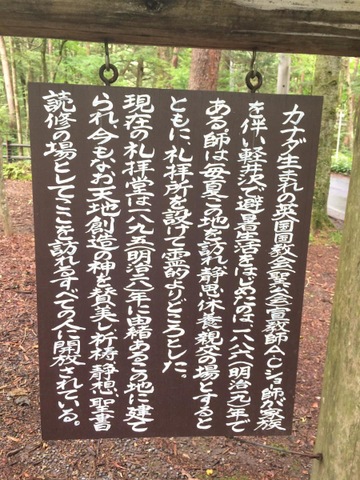 カナダ生まれの英国国教会(聖公会)宣教師A・C・ショー師が家族
を伴い、軽井沢で避暑生活をはじめたのは一八八六(明治一九)年で
ある。師は毎夏この地を訪れ、静思、休養、親交の場とすると
ともに、礼拝所を設けて霊的よりどころとした。
現在の礼拝堂は一八九五(明治二八)年に由緒あるこの地に建て
られ、今もなお天地創造の神を賛美し、祈祷、静想、聖書
読修の場としてここを訪れるすべての人に開放されている。